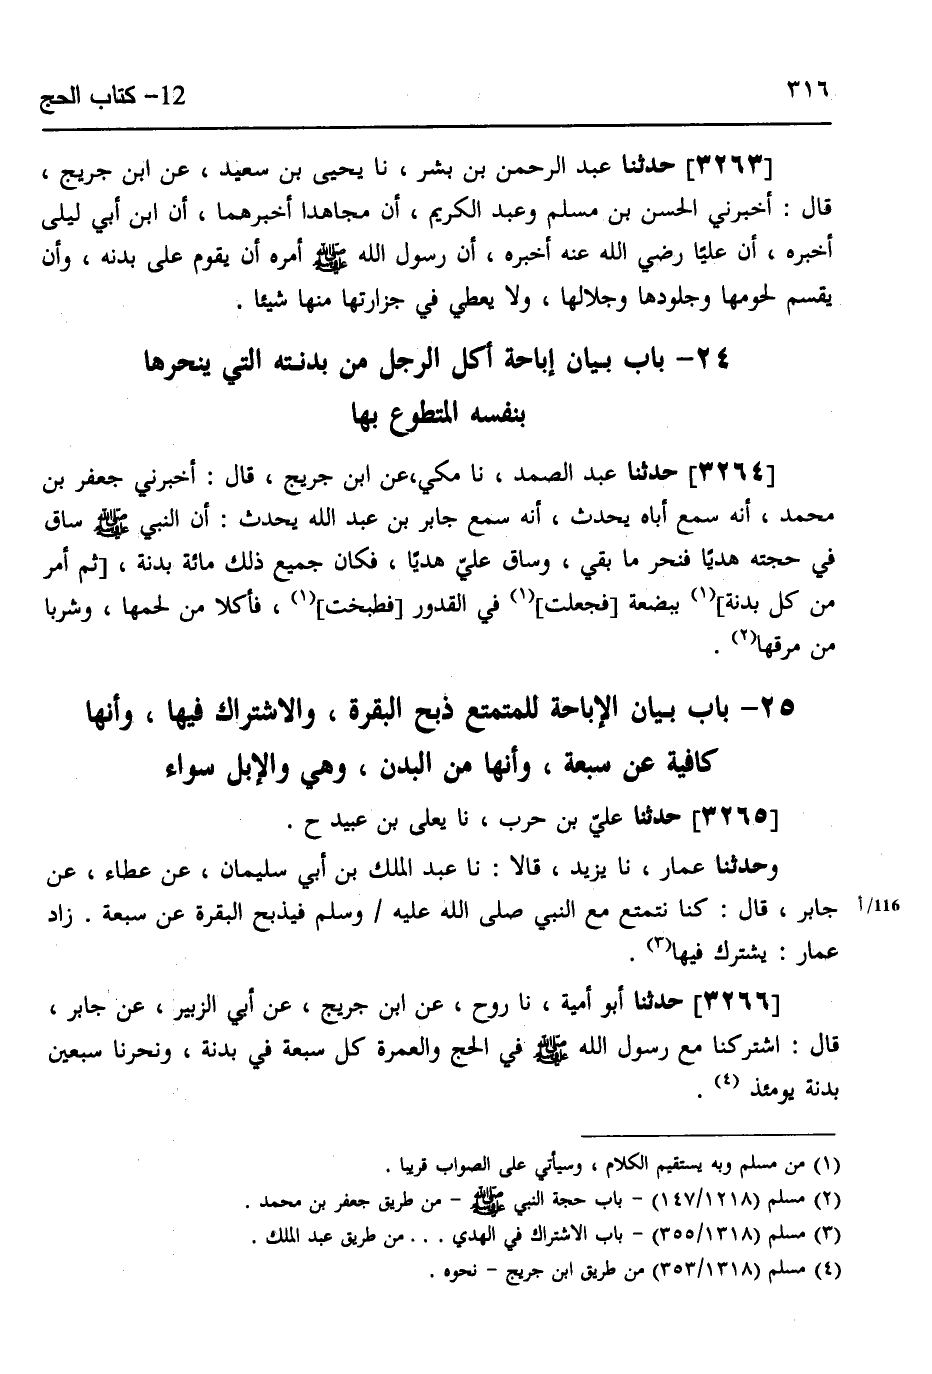 ٣١٦
12- كتاب الحج
[٣٢٦٣] حدثنا عبد الرحمن بن بشر ، نا يحيى بن سعيد ، عن ابن جريج ،
قال : أخبرني الحسن بن مسلم وعبد الكريم ، أن مجاهدا أخبرهما ، أن ابن أبي ليلى
أخبره ، أن عليًا رضي الله عنه أخبره ، أن رسول الله ﷺ أمره أن يقوم على بدنه ، وأن
يقسم لحومها وجلودها وجلالها ، ولا يعطي في جزارتها منها شيئا .
٢٤- باب بيان إباحة أكل الرجل من بدنته التي ينحرها
بنفسه المتطوع بها
[٣٢٦٤] حدثنا عبد الصمد ، نا مكي،عن ابن جريج ، قال : أخبرني جعفر بن
محمد ، أنه سمع أباه يحدث ، أنه سمع جابر بن عبد الله يحدث : أن النبي ﷺ ساق
في حجته هديًا فنحر ما بقي ، وساق عليّ هديًا ، فكان جميع ذلك مائة بدنة ، [ثم أمر
من كل بدنة](١) ببضعة [فجعلت](١) في القدور [فطبخت](١) ، فأكلا من لحمها ، وشربا
من مرقها(٢) .
٢٥- باب بيان الإباحة للمتمتع ذبح البقرة ، والاشتراك فيها ، وأنها
كافية عن سبعة ، وأنها من البدن ، وهي والإبل سواء
[٣٢٦٥] حدثنا عليّ بن حرب ، نا يعلى بن عبيد ح .
وحدثنا عمار ، نا يزيد ، قالا : نا عبد الملك بن أبي سليمان ، عن عطاء ، عن
جابر ، قال : كنا نتمتع مع النبي صلى الله عليه / وسلم فيذبح البقرة عن سبعة . زاد
116/أ
عمار : يشترك فيها(٣) .
[٣٢٦٦] حدثنا أبو أمية ، نا روح ، عن ابن جريج ، عن أبي الزبير ، عن جابر ،
قال : اشتركنا مع رسول الله ﷺ في الحج والعمرة كل سبعة في بدنة ، ونحرنا سبعين
بدنة يومئذ (٤) .
(١) من مسلم وبه يستقيم الكلام ، وسيأتي على الصواب قريبا .
(٢) مسلم (١٤٧/١٢١٨) - باب حجة النبي ﷺ - من طريق جعفر بن محمد .
(٣) مسلم (٣٥٥/١٣١٨) - باب الاشتراك في الهدي . . . من طريق عبد الملك .
(٤) مسلم (٣٥٣/١٣١٨) من طريق ابن جريج - نحوه .